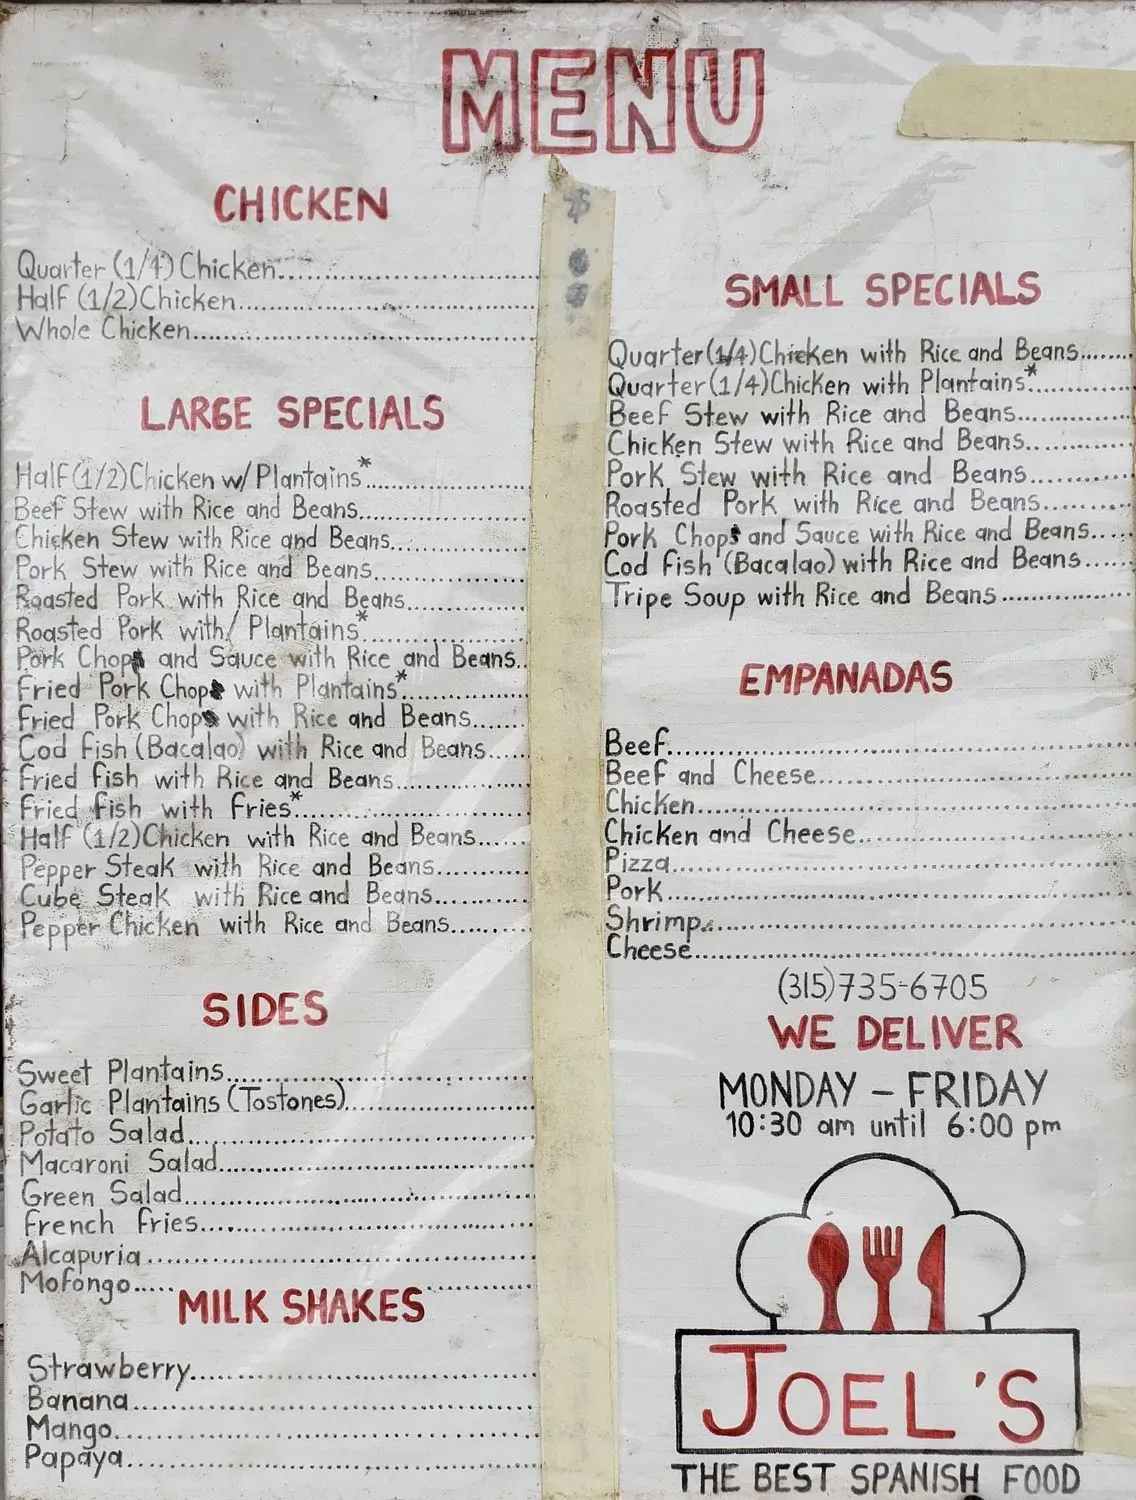 MENU
CHICKEN
Quarter (1/4) Chicken
Half (1/2) Chicken
Whole Chicken
LARGE SPECIALS
Half (1/2) Chicken w/ Plantains*
Beef Stew with Rice and Beans
Chicken Stew with Rice and Beans
Pork Stew with Rice and Beans
Roasted Pork with Rice and Beans
Roasted Pork with/ Plantains*
Pork Chop and Sauce with Rice and Beans
Fried Pork Chop with Plantains*
Fried Pork Chop with Rice and Beans
Cod Fish (Bacalao) with Rice and Beans
Fried Fish with Rice and Beans
Fried Fish with Fries*
Half (1/2) Chicken with Rice and Beans
Pepper Steak with Rice and Beans
Cube Steak with Rice and Beans
Pepper Chicken with Rice and Beans
SIDES
Sweet Plantains
Garlic Plantains (Tostones)
Potato Salad
Macaroni Salad
Green Salad
French Fries
Alcapuria
Mofongo
MILK SHAKES
Strawberry
Banana
Mango
Papaya
SMALL SPECIALS
Quarter (1/4) Chicken with Rice and Beans
Quarter (1/4) Chicken with Plantains*
Beef Stew with Rice and Beans
Chicken Stew with Rice and Beans
Pork Stew with Rice and Beans
Roasted Pork with Rice and Beans
Pork Chop and Sauce with Rice and Beans
Cod Fish (Bacalao) with Rice and Beans
Tripe Soup with Rice and Beans
EMPANADAS
Beef
Beef and Cheese
Chicken
Chicken and Cheese
Pizza
Pork
Shrimp
Cheese
(315)735-6705
WE DELIVER
MONDAY – FRIDAY
10:30 am until 6:00 pm
JOEL'S
THE BEST SPANISH FOOD